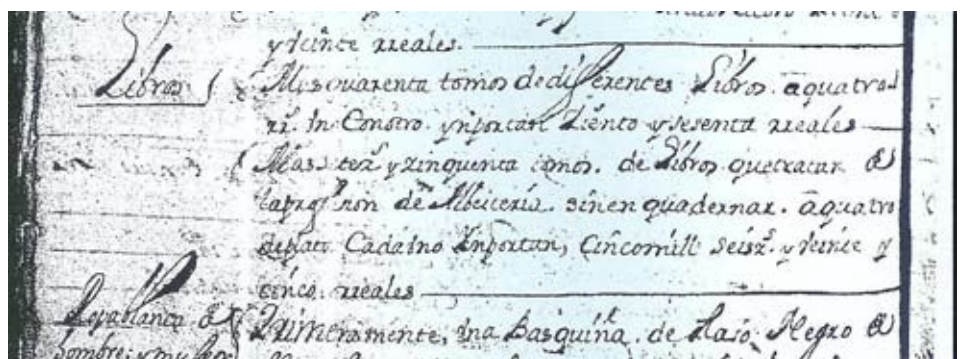 y Veinte rreales
Libros
Mas quarenta tomos de differentes Libros. a quatro
rr.s Un Con otro. ynportan Ziento y sesenta rreales
Mas y zinquenta tomos. de Libros que tratan de
la de Albeiteria. sin en quadernar. a quatro
Cada Uno Ynportan, Cinco mill seisz.s y Veinte y
cinco. rreales
Ropa blanca de
hombre y muger
Primeramente, Una Basquiña. de Raso Negro de